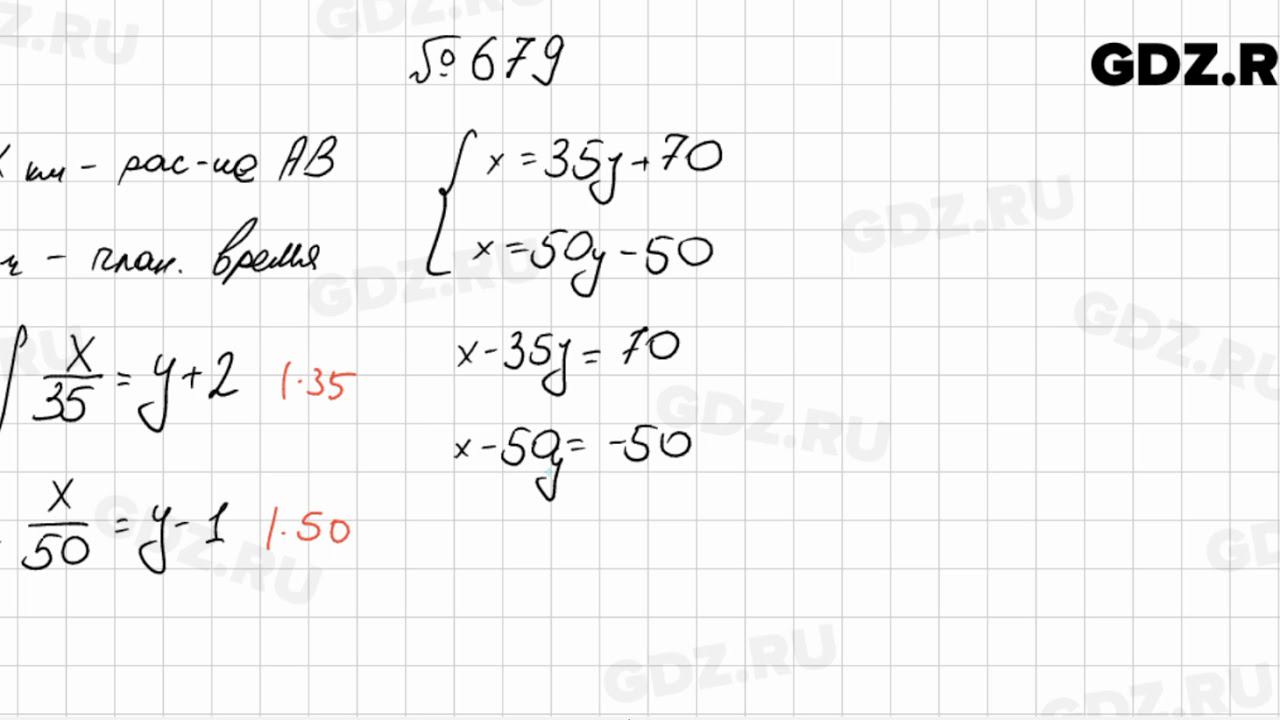 № 679
GDZ.R
X км - рас-ие AB
ч - план. время
x/35 = y+2 |·35
x/50 = y-1 |·50
x = 35y+70
x = 50y-50
x-35y = 70
x-50y = -50
GDZ.RU